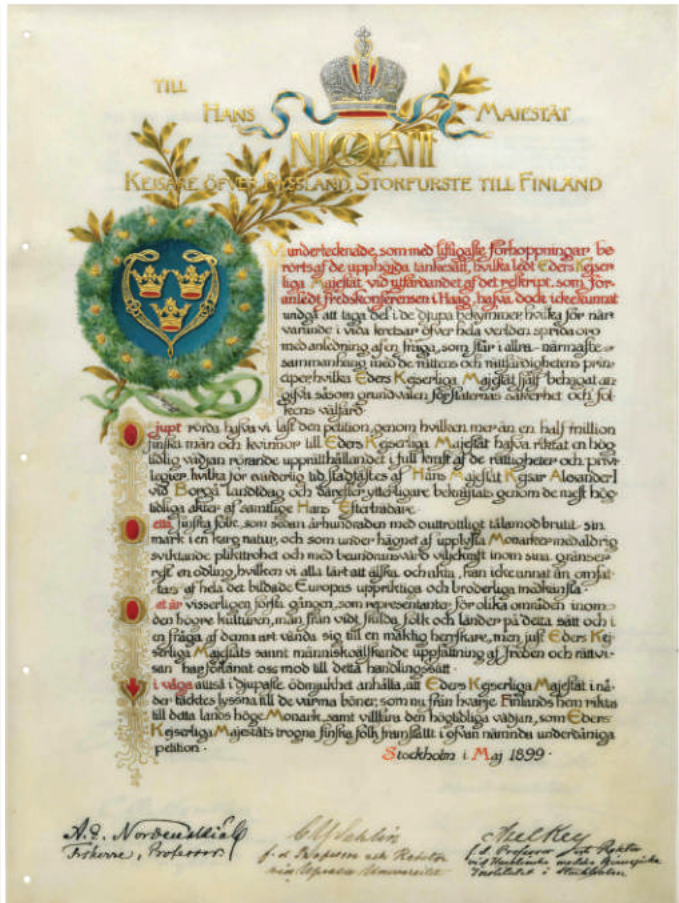 TILL
HANS MAJESTÄT
NICOLAI II
KEJSARE ÖFVER RYSSLAND, STORFURSTE TILL FINLAND
undertecknade, som med lifligaste förhoppningar be
rörts af de upphöjda tänkesätt, hvilka ledt Eders Kejser
liga Majestät vid utfärdandet af det reskript, som för-
anledt fredskonferensen i Haag, hafva dock icke kunnat
undgå att taga del i de djupa bekymmer, hvilka för när
varande i vida kretsar öfver hela verlden sprida oro
med anledning af en fråga, som står i allra närmaste
sammanhang med de rättens och rättfärdighetens prin
ciper, hvilka Eders Kejserliga Majestät sjelf behagat an
gifva såsom grundvalen för staternas säkerhet och fol
kens välfärd.
jupt rörda hafva vi läst den petition, genom hvilken mer än en half million
finska män och kvinnor till Eders Kejserliga Majestät hafva riktat en hög
tidlig vädjan rörande upprätthållandet i full kraft af de rättigheter och privi
legier, hvilka för evärdelig tid stadfästes af Hans Majestät Kejsar Alexander I
vid Borgå landtdag och därefter ytterligare bekräftats genom de mest hög
tidliga akter af samtlige Hans Efterträdare.
etta finska folk, som sedan århundraden med outtröttligt tålamod brutit sin
mark i en karg natur, och som under hägnet af upplysta Monarker med aldrig
sviktande plikttrohet och med beundransvärd viljekraft inom sina gränser
rest en odling, hvilken vi alla lärt att älska och akta, kan icke annat än omfat
tas af hela det bildade Europas uppriktiga och broderliga medkänsla.
et är visserligen första gången, som representanter för olika områden inom
den högre kulturen, män från vidt skilda folk och länder på detta sätt och i
en fråga af denna art vända sig till en mäktig herrskare, men just Eders Kej
serliga Majestäts sannt människoälskande uppfattning af freden och rättvi
san har förlänat oss mod till detta handlingssätt.
i våga alltså i djupaste ödmjukhet anhålla, att Eders Kejserliga Majestät i nå
der täcktes lyssna till de varma böner, som nu från hvarje Finlands hem riktas
till detta lands höge Monark, samt villfara den högtidliga vädjan, som Eders
Kejserliga Majestäts trogna finska folk framställt i ofvan nämnda underdåniga
petition.
Stockholm i Maj 1899.
A. E. Nordenskiöld
Friherre, Professor.
C Y Sahlin
f. d. Professor och Rektor
vid Upsala Universitet
Axel Key
f. d. Professor och Rektor
vid Karolinska mediko kirurgiska
Institutet i Stockholm